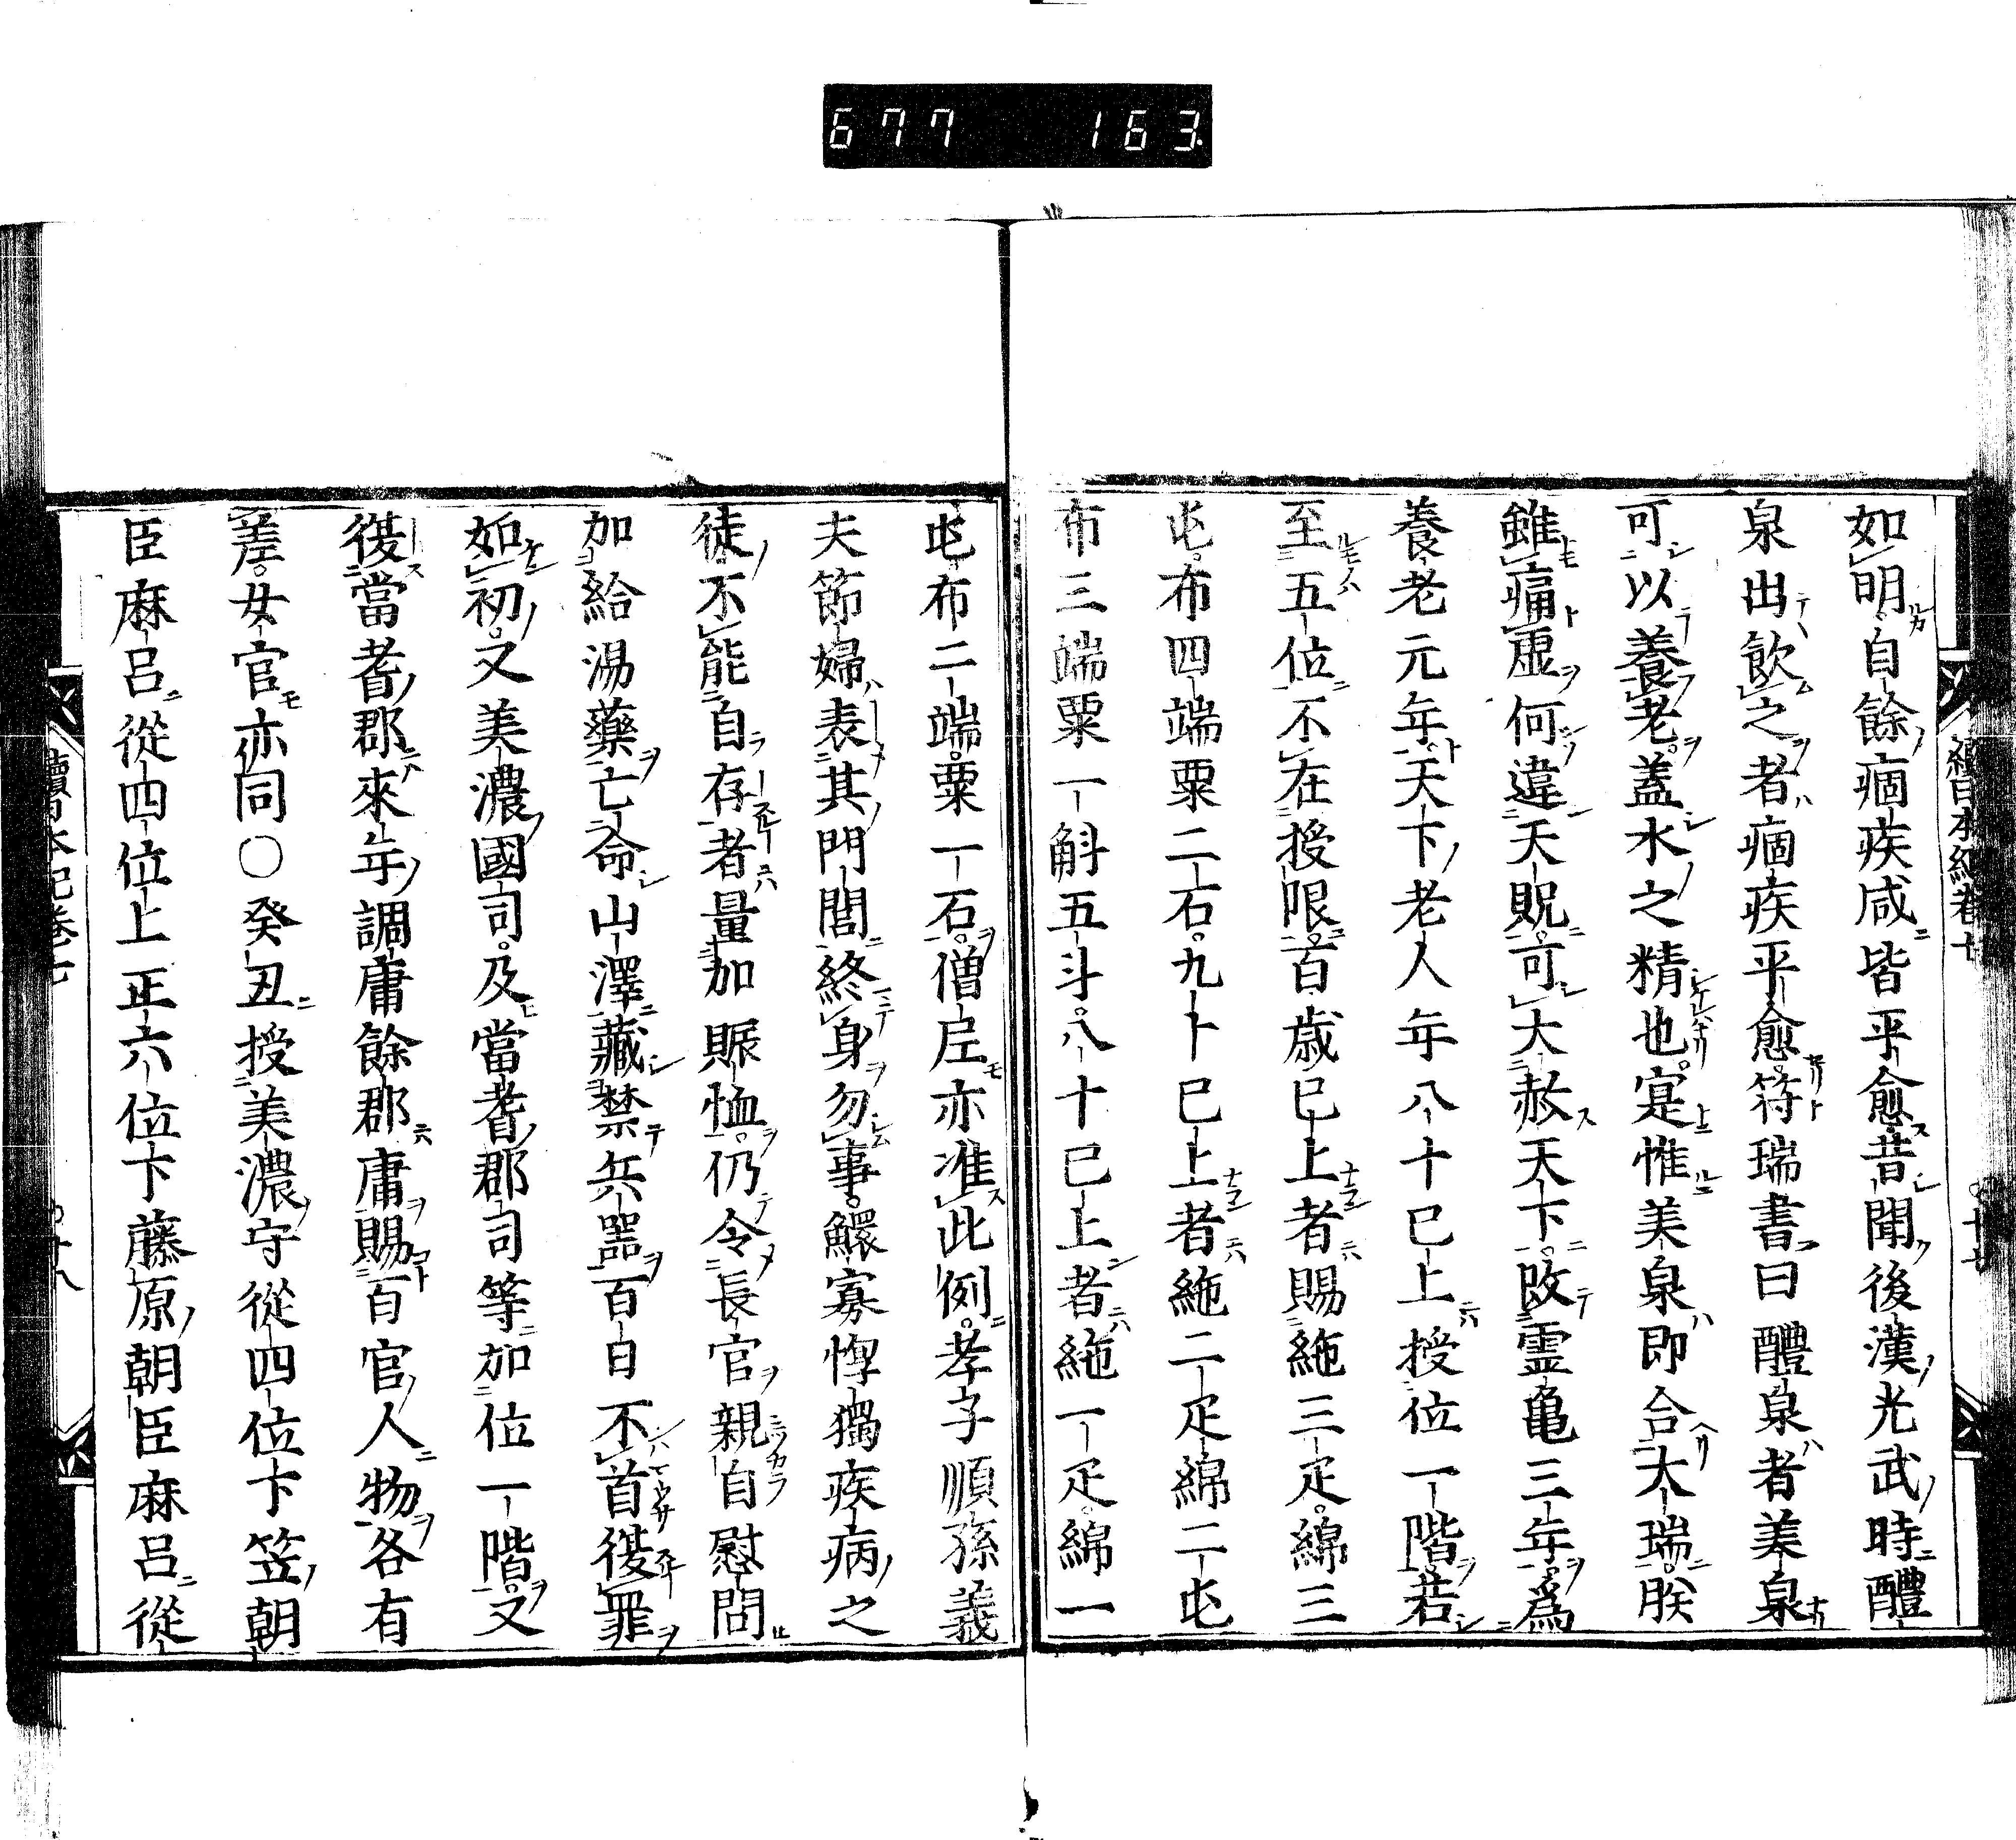 677 163
如明自餘痼疾咸皆平愈昔聞後漢光武時醴
泉出飲之者痼疾平愈符瑞書曰醴泉者美泉
可以養老蓋水之精也寔惟美泉即合大瑞朕
雖痛虚何違天貺可大赦天下改霊亀三年爲
養老元年天下老人年八十已上授位一階若
至五位不在授限百歳已上者賜絁三疋綿三
屯布四端粟二石九十已上者絁二疋綿二屯
布三端粟一斛五斗八十已上者絁一疋綿一
屯布二端粟一石僧尼亦准此例孝子順孫義
夫節婦表其門閭終身勿事鰥寡惸獨疾病之
徒不能自存者量加賑恤仍令長官親自慰問
加給湯藥亡命山澤藏禁兵器百日不首復罪
如初又美濃國司及當耆郡司等加位一階又
復當耆郡來年調庸餘郡庸賜百官人物各有
差女官亦同○癸丑授美濃守從四位下笠朝
臣麻呂從四位上正六位下藤原朝臣麻呂從